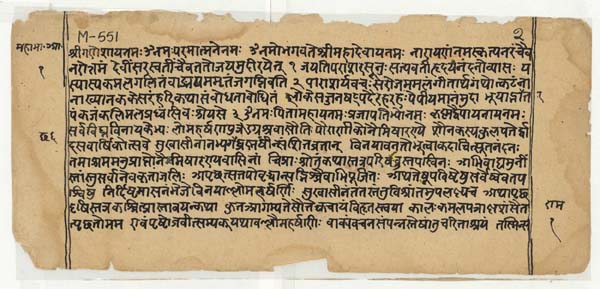 M-551
२
महाभा॰आ
१
श्रीगणेशायनमः ॐनमःपरमात्मनेनमः ॐनमोभगवतेश्रीमहादेवायनमः नारायणंनमस्कृत्यनरंचैव
नरोत्तमं देवींसरस्वतींचैवततोजयमुदीरयेत् १ जयतिपराशरसूनुःसत्यवतीहृदयनंदनोव्यासः य
स्यास्यकमलगलितंवाङ्मयममृतंजगत्पिबति २ पाराशर्यवचःसरोजममलंगीतार्थगंधोत्कटंना
नाख्यानककेसरंहरिकथासंबोधनाबोधितं लोकेसज्जनषट्पदैरहरहःपेपीयमानंमुदा भूयाद्भारत
पंकजंकलिमलप्रध्वंसिनःश्रेयसे ३ ॐनमःपितामहायनमःप्रजापतिभ्योनमः कृष्णद्वैपायनायनमः
सर्वविघ्नविनायकेभ्यः लोमहर्षणपुत्रउग्रश्रवाःसौतिः पौराणिकोनैमिषारण्ये शौनकस्यकुलपतेर्द्वा
दशवार्षिकेसत्रे सुखासीनानभ्यगच्छद्ब्रह्मर्षीन्संशितव्रतान् विनयावनतोभूत्वाकदाचित्सूतनंदनः
तमाश्रममनुप्राप्तंनैमिषारण्यवासिनां चित्राःश्रोतुंकथास्तत्रपरिवव्रुस्तपस्विनः अभिवाद्यमुनीं
स्तांस्तुसर्वानेवकृतांजलिः अपृच्छत्सतपोवृद्धिंसद्भिश्चैवाभिपूजितः अथतेषूपविष्टेषुसर्वेष्वेवतप
स्विषु निर्दिष्टमासनंभेजेविनयाल्लौमहर्षणिः सुखासीनंततस्तंतुविश्रांतमुपलक्ष्यच अथापृच्छ
दृषिस्तत्रकश्चित्प्रस्तावयन्कथाः कुतआगम्यतेसौतेक्वचायंविहृतस्त्वया कालःकमलपत्राक्षशंसैत
त्पृच्छतोमम एवंपृष्टोब्रवीत्सम्यक्यथावल्लौमहर्षणिः वाक्यंवचनसंपन्नस्तेषांतुचरिताश्रयं तस्मिन्स
राम
१